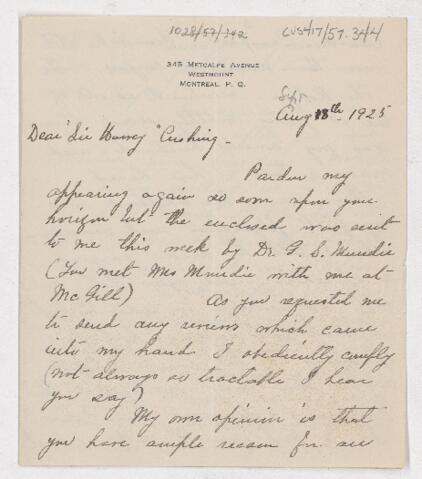 1028/57/342 CUS417/57.344
345 METCALFE AVENUE
WESTMOUNT
MONTREAL, P. Q.
Sept
Aug 18th 1925
Dear "Sir Harvey" Cushing -
Pardon my
appearing again so soon upon your
horizon but the enclosed was sent
to me this week by Dr. G. S. Mundie
(You met Mrs Mundie with me at
McGill) As you requested me
to send any reviews which came
into my hand I obediently comply
(not always so tractable I hear
you say?)
My own opinion is that
you have ample reason for